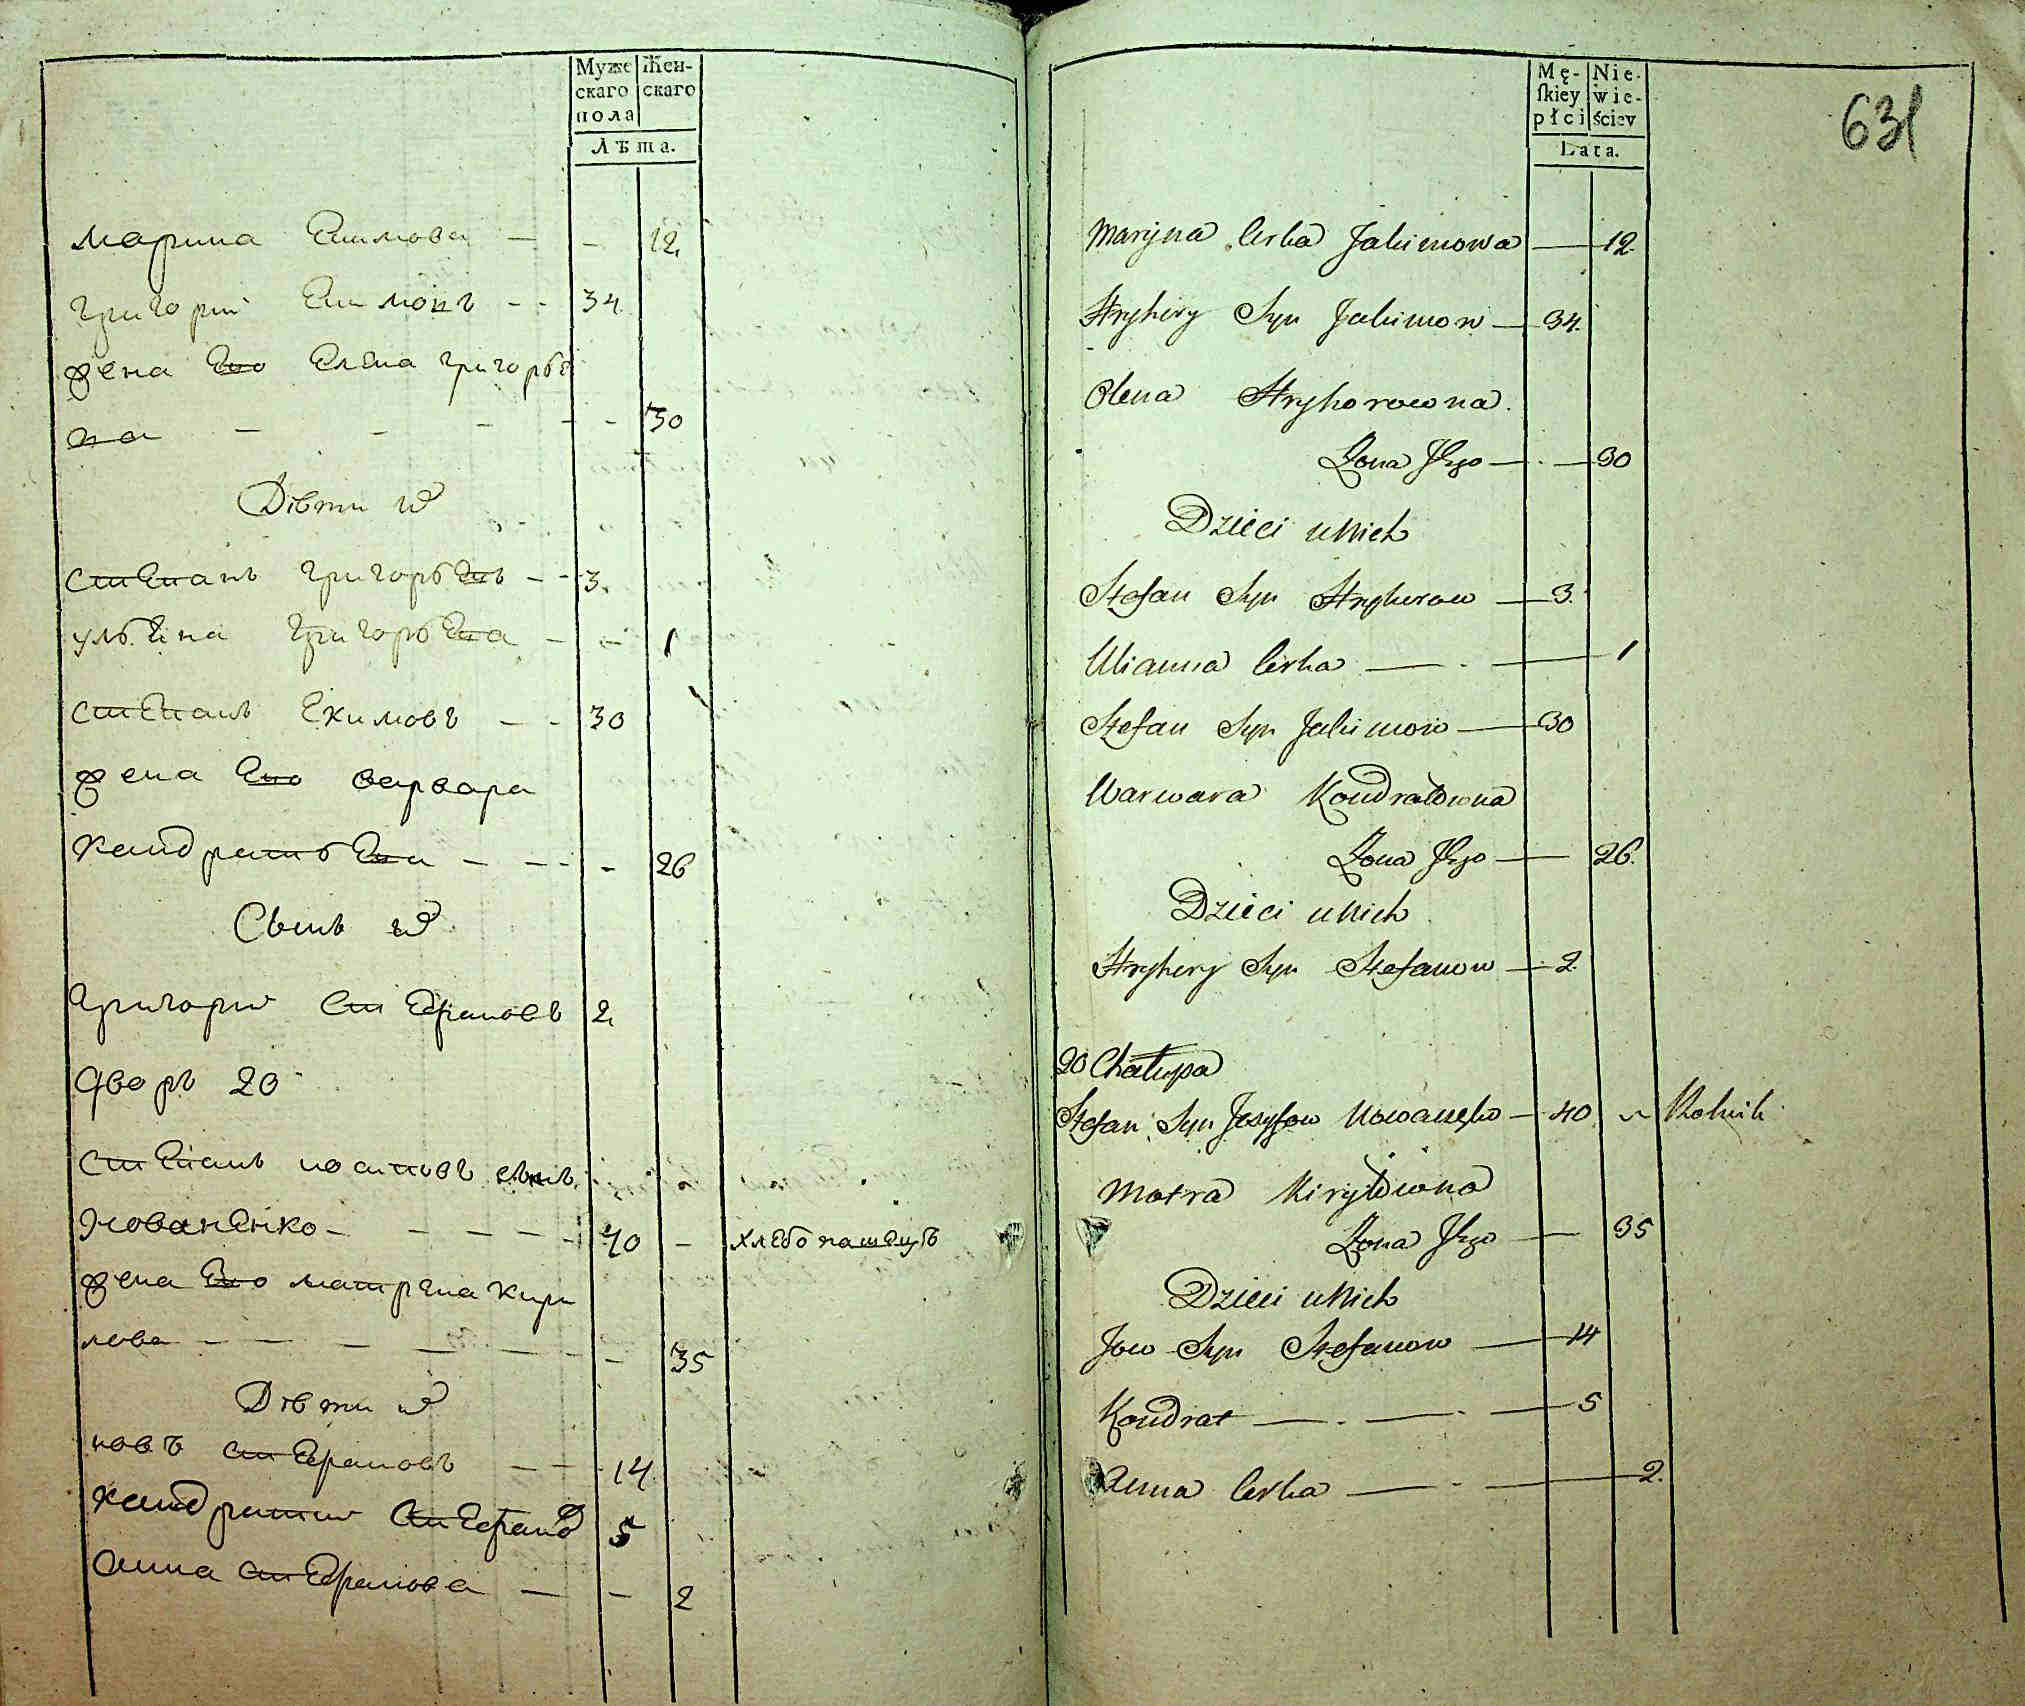 Муже
скаго
пола
Жен-
скаго
Лѣта.
Марина Екимова — — 12
Григорий Екимовъ — — 34
жена Ево Елена григорьѣ
на — — — — — 30
Дѣти и҃
стЕпанъ григорьЕвъ — — 3.
ульЕна григорьЕва — — 1
стЕпанъ Екимовъ — — 30
жена Ево варвара
кандратьЕва — — — 26
Сынъ и҃
григорий стЕфановъ 2
дворъ 20
стЕпанъ иосиповъ сынъ
НованЕнко — — — — — 40 — хлЕбопашецъ
жена Ево матрена кири
лова — — — — — — 35
Дѣти и҃
иовъ стЕфановъ — — 14
кандратий стЕфано 5
анна стЕфанова — — 2
631
Mę-
ſkiey
płci
Nie-
wie-
ściey
Lata.
Maryna Corka Jakimowa — 12.
Hryhory Syn Jakimow — 34.
Olena Hryhorowna.
Żona Jego — . — 30
Dzieci u Nich
Stefan Syn Hryhorow — 3.
Ulianna Corka — . — 1
Stefan Syn Jakimow — 30
Warwara Kondratowna
Żona Jego — 26.
Dzieci u Nich
Hryhory Syn Stefanow — 2.
20 Chałupa
Stefan Syn Jozyfow Nowanęko — 40 „ Rolnik
Motra Kiryłowna
Żona Jego — 35
Dzieci u Nich
Jow Syn Stefanow — 14
Kondrat — . — . — 5
Anna Corka — . — 2.